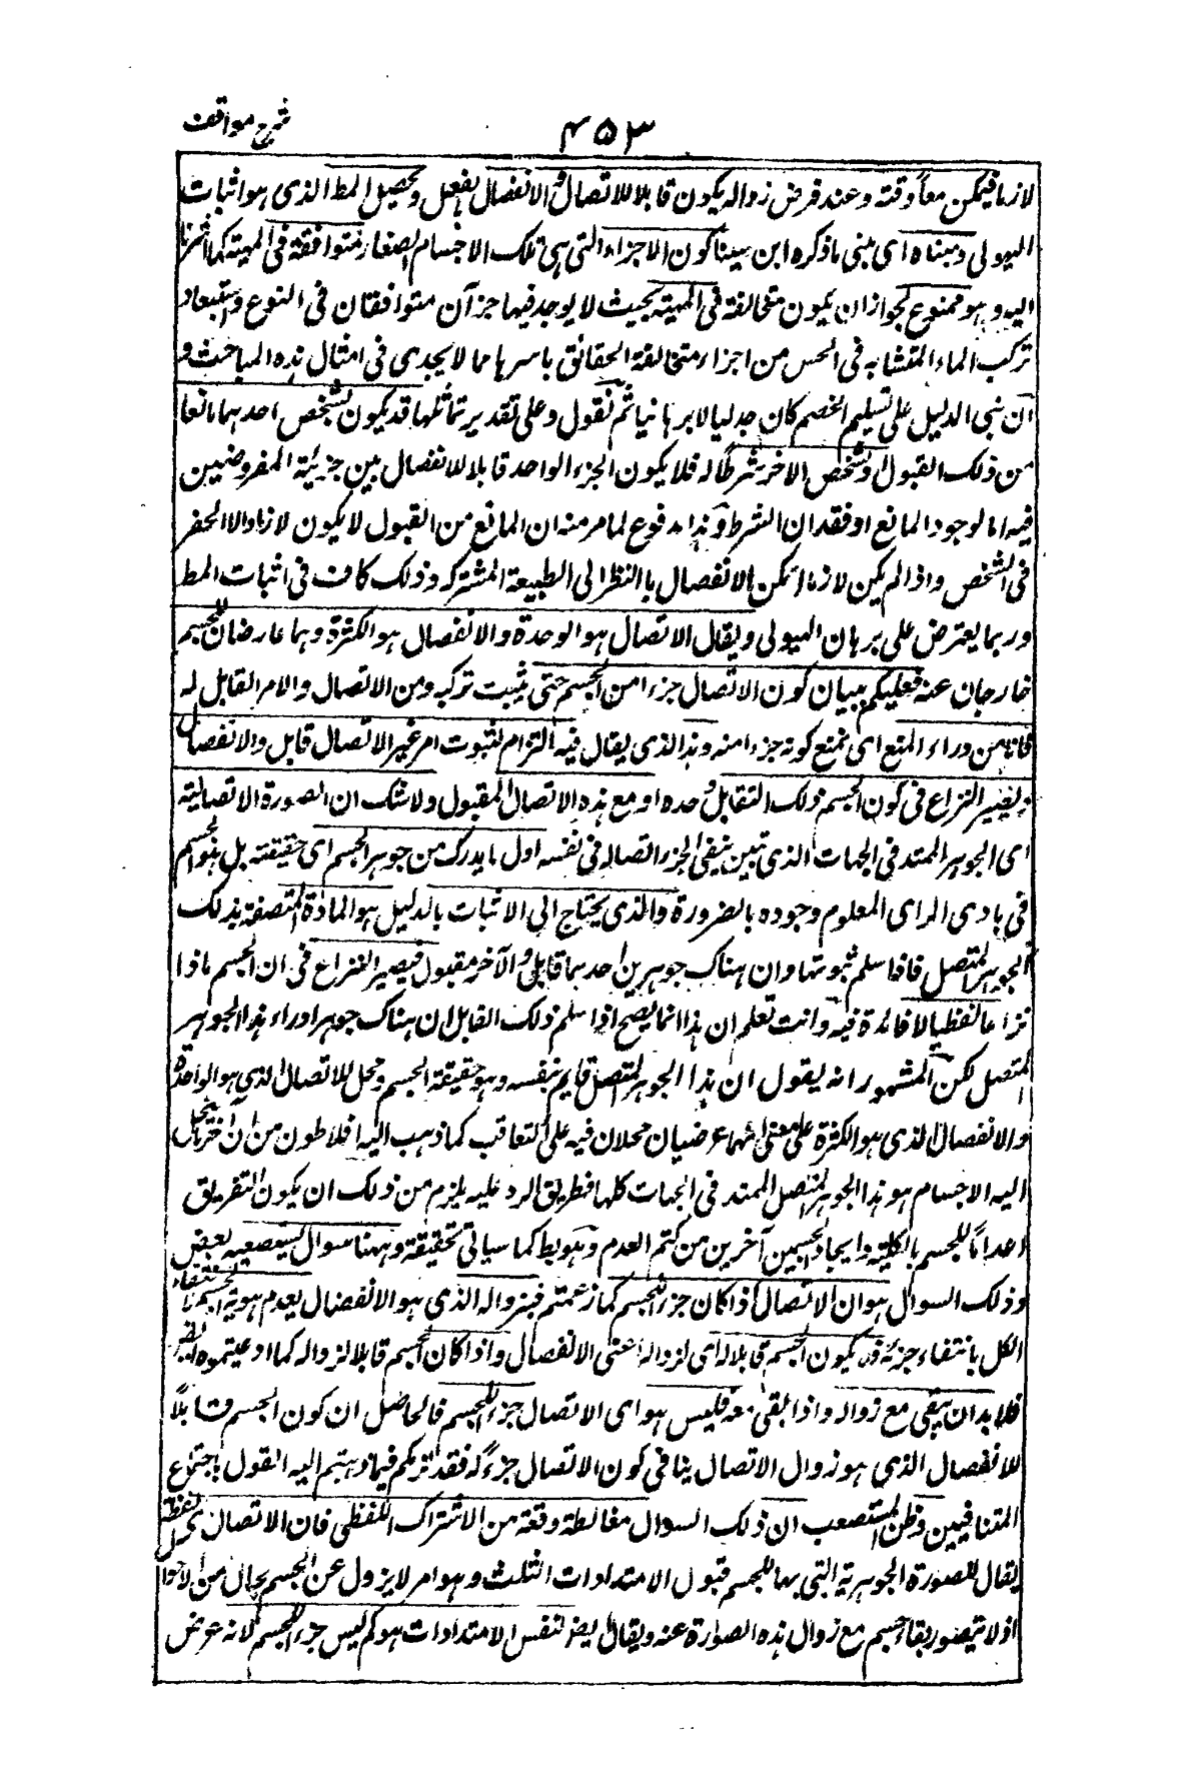 شرح مواقف
۴۵۳
لازما فيمكن مفارقته وعند فرض زواله يكون قابلا للاتصال والانفصال بالفعل ويحصل المط الذى هو اثبات
الهيولى ومبناه اى مبنى ما ذكره ابن سينا كون الاجزاء التى هى تلك الاجسام الصغار متوافقة فى المهية كما اشرنا
اليه وهو ممنوع لجواز ان يكون متخالفة فى المهية بحيث لا يوجد فيها جزآن متوافقان فى النوع واستبعاد
تركب الماء المتشابه فى الحس من اجزاء متخالفة الحقائق باسرها مما لا يجدى فى امثال هذه المباحث و
ان بنى الدليل على تسليم الخصم كان جدليا لا برهانيا ثم نقول وعلى تقدير تماثلها قد يكون تشخص احدهما مانعا
من ذلك القبول او تشخص الآخر شرطا له فلا يكون الجزء الواحد قابلا للانفصال بين جزئيه المفروضين
فيه اما لوجود المانع او فقدان الشرط وهذا مدفوع لما مر منه ان المانع من القبول لا يكون لازما والا انحصر
فى الشخص واذا لم يكن لازما امكن الانفصال بالنظر الى الطبيعة المشتركة وذلك كاف فى اثبات المط
وربما يعترض على برهان الهيولى ويقال الاتصال هو الوحدة والانفصال هو الكثرة وهما عارضان للجسم
خارجان عنه فعليكم ببيان كون الاتصال جزءا من الجسم حتى يثبت تركبه من الاتصال والامر القابل له
فانا من وراء المنع اى نمنع كونه جزءا منه وهذا الذى يقال فيه التزام لثبوت امر غير الاتصال قابل والانفصال
ويصير النزاع فى كون الجسم ذلك القابل وحده او مع هذه الاتصال المقبول ولا شك ان الصورة الاتصالية
اى الجوهر الممتد فى الجهات الذى تبين بنفى الجزء اتصاله فى نفسه اول ما يدرك من جوهر الجسم اى حقيقته بل هو الجسم
فى بادى الراى المعلوم وجوده بالضرورة والذى يحتاج الى الاثبات بالدليل هو المادة المتصفة بذلك
الجوهر المتصل فاذا سلم ثبوتها وان هناك جوهرين احدهما قابل والآخر مقبول فيصير النزاع فى ان الجسم ماذا
نزاعا لفظيا لا فائدة فيه وانت تعلم ان هذا انما يصح اذا سلم ذلك القابل ان هناك جوهرا وراء هذا الجوهر
المتصل لكن المشهور انه يقول ان هذا الجوهر المتصل قايم بنفسه وهو حقيقة الجسم ومحل للاتصال الذى هو الوحدة
والانفصال الذى هو الكثرة على معنى انهما عرضيان يحلان فيه على التعاقب كما ذهب اليه افلاطون من ان آخر ما ينحل
اليه الاجسام هو هذا الجوهر المتصل الممتد فى الجهات كلها فطريق الرد عليه يلزم من ذلك ان يكون التفريق
اعداما للجسم بالكلية وايجادا لجسمين آخرين من كتم العدم وهو بط كما سياتى تحقيقه وههنا سوال يستصعبه بعض
وذلك السوال هو ان الاتصال اذا كان جزءا للجسم كما زعمتم فبزواله الذى هو الانفصال يعدم هوية الجسم لانتفاء
الكل بانتفاء جزئه فلا يكون الجسم قابلا له اى لزواله اعنى الانفصال واذا كان الجسم قابلا لزواله كما ادعيتموه
فلا بد ان يبقى مع زواله واذا بقى معه فليس هو اى الاتصال جزءا للجسم فالحاصل ان كون الجسم قابلا
للانفصال الذى هو زوال الاتصال ينافى كون الاتصال جزءا له فقد لزمكم فيما ذهبتم اليه القول باجتماع
المتنافيين وظن المستصعب ان ذلك السوال مغالطة وقعت من الاشتراك اللفظى فان الاتصال
يقال للصورة الجوهرية التى بها للجسم قبول الامتدادات الثلث وهو امر لا يزول عن الجسم بحال من الاحوال
اذ لا يتصور بقاء جسم مع زوال هذه الصورة عنه ويقال ايضا لنفس الامتدادات هو كم ليس جزءا للجسم لانه عرض